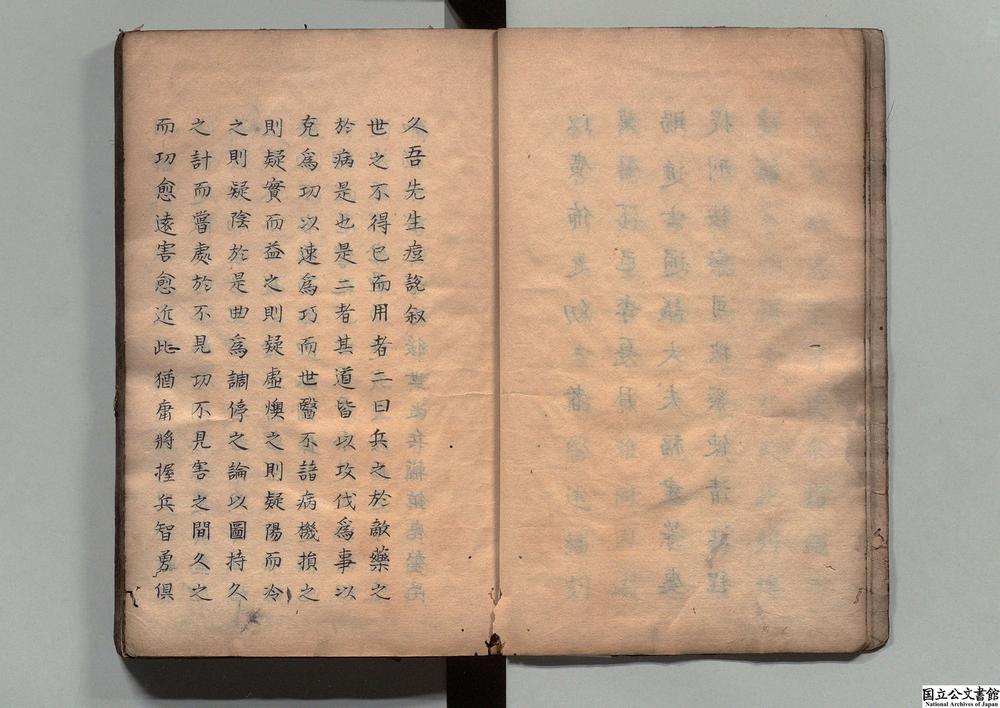 久吾先生痘説叙
世之不得已而用者二曰兵之於敵藥之
於病是也是二者其道皆以攻伐為事以
克為功以速為巧而世醫不諳病機損之
則疑實而益之則疑虛燠之則疑陽而冷
之則疑陰於是曲為調停之論以圖持久
之計而嘗處於不見功不見害之間久之
而功愈遠害愈近此猶庸將握兵智勇俱
国立公文書館
National Archives of Japan